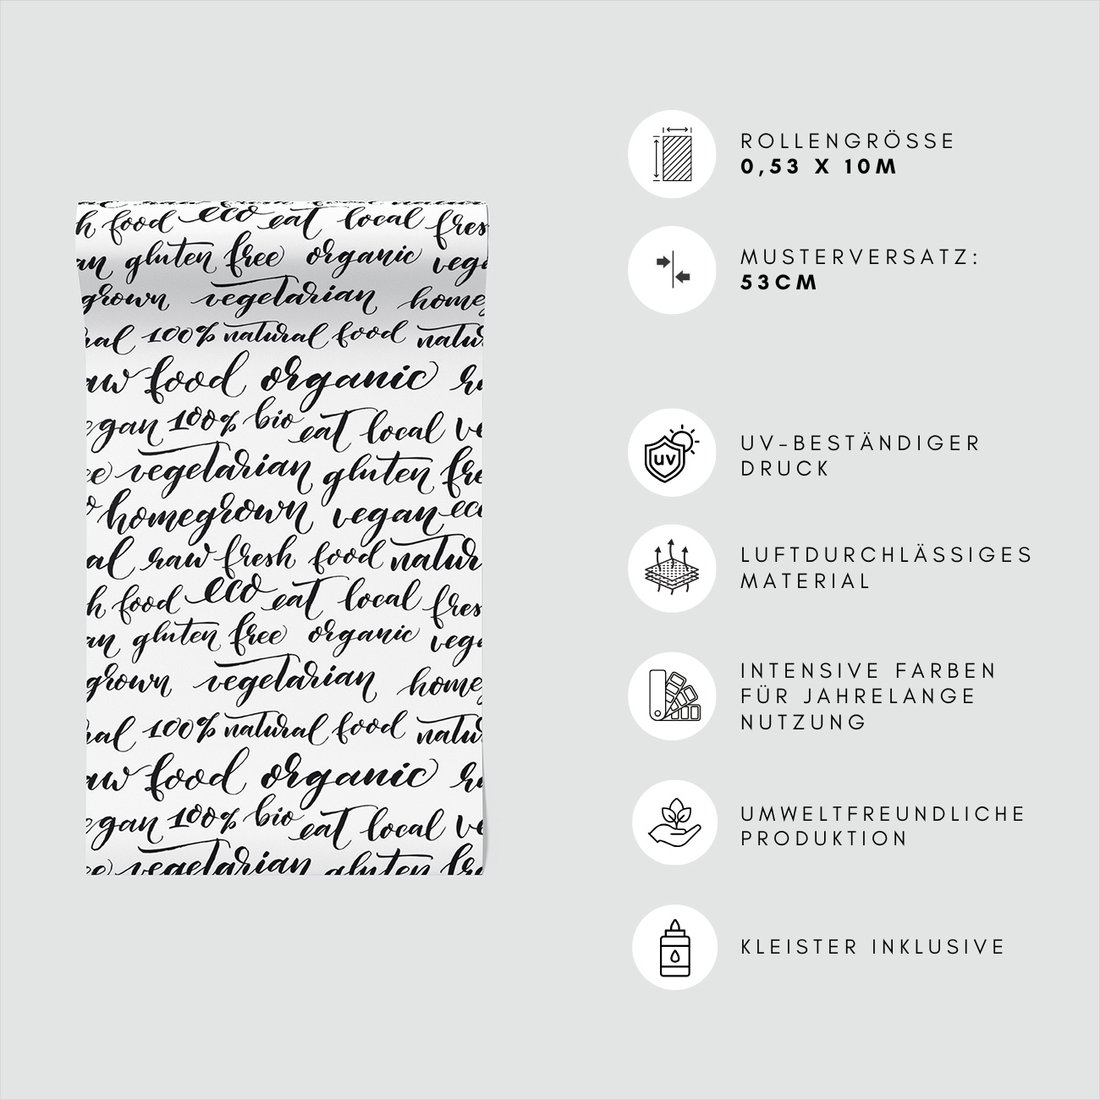 h food eco eat local fres
an gluten free organic veg
grown vegetarian home
ral 100% natural food natu
aw food organic r
egan 100% bio eat local ve
ee vegetarian gluten fre
homegrown vegan eco
al raw fresh food natur
h food eco eat local fres
an gluten free organic vega
grown vegetarian home
ral 100% natural food natu
aw food organic r
egan 100% bio eat local ve
ee vegetarian gluten fre
ROLLENGRÖSSE
0,53 X 10M
MUSTERVERSATZ:
53CM
UV
UV-BESTÄNDIGER
DRUCK
LUFTDURCHLÄSSIGES
MATERIAL
INTENSIVE FARBEN
FÜR JAHRELANGE
NUTZUNG
UMWELTFREUNDLICHE
PRODUKTION
KLEISTER INKLUSIVE